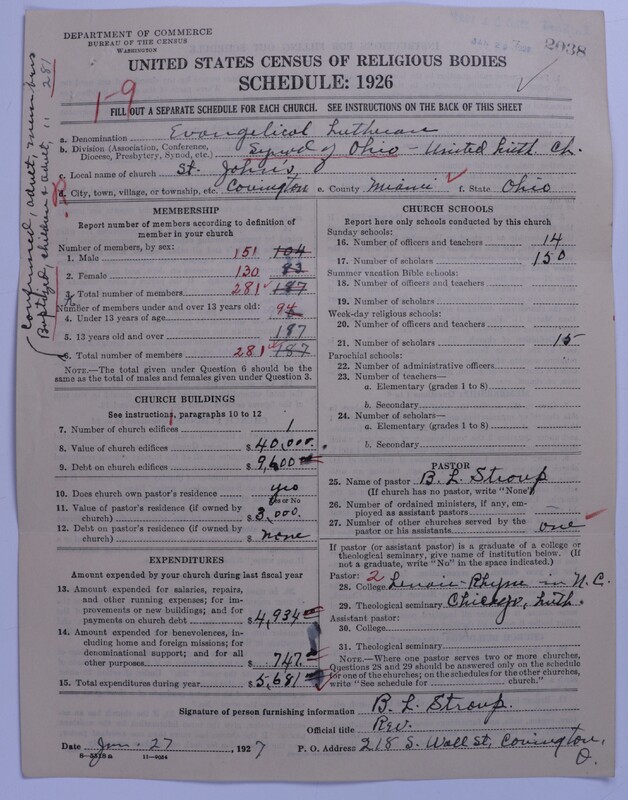 DEPARTMENT OF COMMERCE
BUREAU OF THE CENSUS
WASHINGTON
2038
UNITED STATES CENSUS OF RELIGIOUS BODIES
SCHEDULE: 1926
1-9
FILL OUT A SEPARATE SCHEDULE FOR EACH CHURCH. SEE INSTRUCTIONS ON THE BACK OF THIS SHEET
Confirmed, adult, members
Baptized, children & adult, " 281
a. Denomination Evangelical Lutheran
b. Division (Association, Conference, Diocese, Presbytery, Synod, etc.) Synod of Ohio - United Luth. Ch.
c. Local name of church St. John's
d. City, town, village, or township, etc. Covington e. County Miami f. State Ohio
MEMBERSHIP
Report number of members according to definition of
member in your church
Number of members, by sex:
1. Male 151 104
2. Female 130 83
3. Total number of members 281 187
Number of members under and over 13 years old:
4. Under 13 years of age 94
5. 13 years old and over 187
6. Total number of members 281 187
NOTE.—The total given under Question 6 should be
the same as the total of males and females given under Question 3.
CHURCH BUILDINGS
See instructions, paragraphs 10 to 12
7. Number of church edifices 1
8. Value of church edifices $ 40,000.
9. Debt on church edifices $ 9,600
10. Does church own pastor's residence yes
Yes or No
11. Value of pastor's residence (if owned by
church) $ 3,000.
12. Debt on pastor's residence (if owned by
church) $ none
EXPENDITURES
Amount expended by your church during last fiscal year
13. Amount expended for salaries, repairs,
and other running expenses; for im-
provements or new buildings; and for
payments on church debt $ 4,934
14. Amount expended for benevolences, in-
cluding home and foreign missions; for
denominational support; and for all
other purposes $ 747.
15. Total expenditures during year $ 5,681
CHURCH SCHOOLS
Report here only schools conducted by this church
Sunday schools:
16. Number of officers and teachers 14
17. Number of scholars 150
Summer vacation Bible schools:
18. Number of officers and teachers
19. Number of scholars
Week-day religious schools:
20. Number of officers and teachers
21. Number of scholars 15
Parochial schools:
22. Number of administrative officers
23. Number of teachers—
a. Elementary (grades 1 to 8)
b. Secondary
24. Number of scholars—
a. Elementary (grades 1 to 8)
b. Secondary
PASTOR
25. Name of pastor B. L. Stroup
(If church has no pastor, write "None")
26. Number of ordained ministers, if any, em-
ployed as assistant pastors
27. Number of other churches served by the
pastor or his assistants one
If pastor (or assistant pastor) is a graduate of a college or
theological seminary, give name of institution below. (If
not a graduate, write "No" in the space indicated.)
Pastor: 2
28. College Lenoir-Rhyne in N.C.
29. Theological seminary Chicago, Luth.
Assistant pastor:
30. College
31. Theological seminary
NOTE.—Where one pastor serves two or more churches,
Questions 28 and 29 should be answered only on the schedule
for one of the churches; on the schedules for the other churches,
write "See schedule for church."
Signature of person furnishing information B. L. Stroup.
Official title Rev.
Date Jan. 27, 1927 P. O. Address 218 S. Wall St, Covington, O.
8-5518a 11-9064